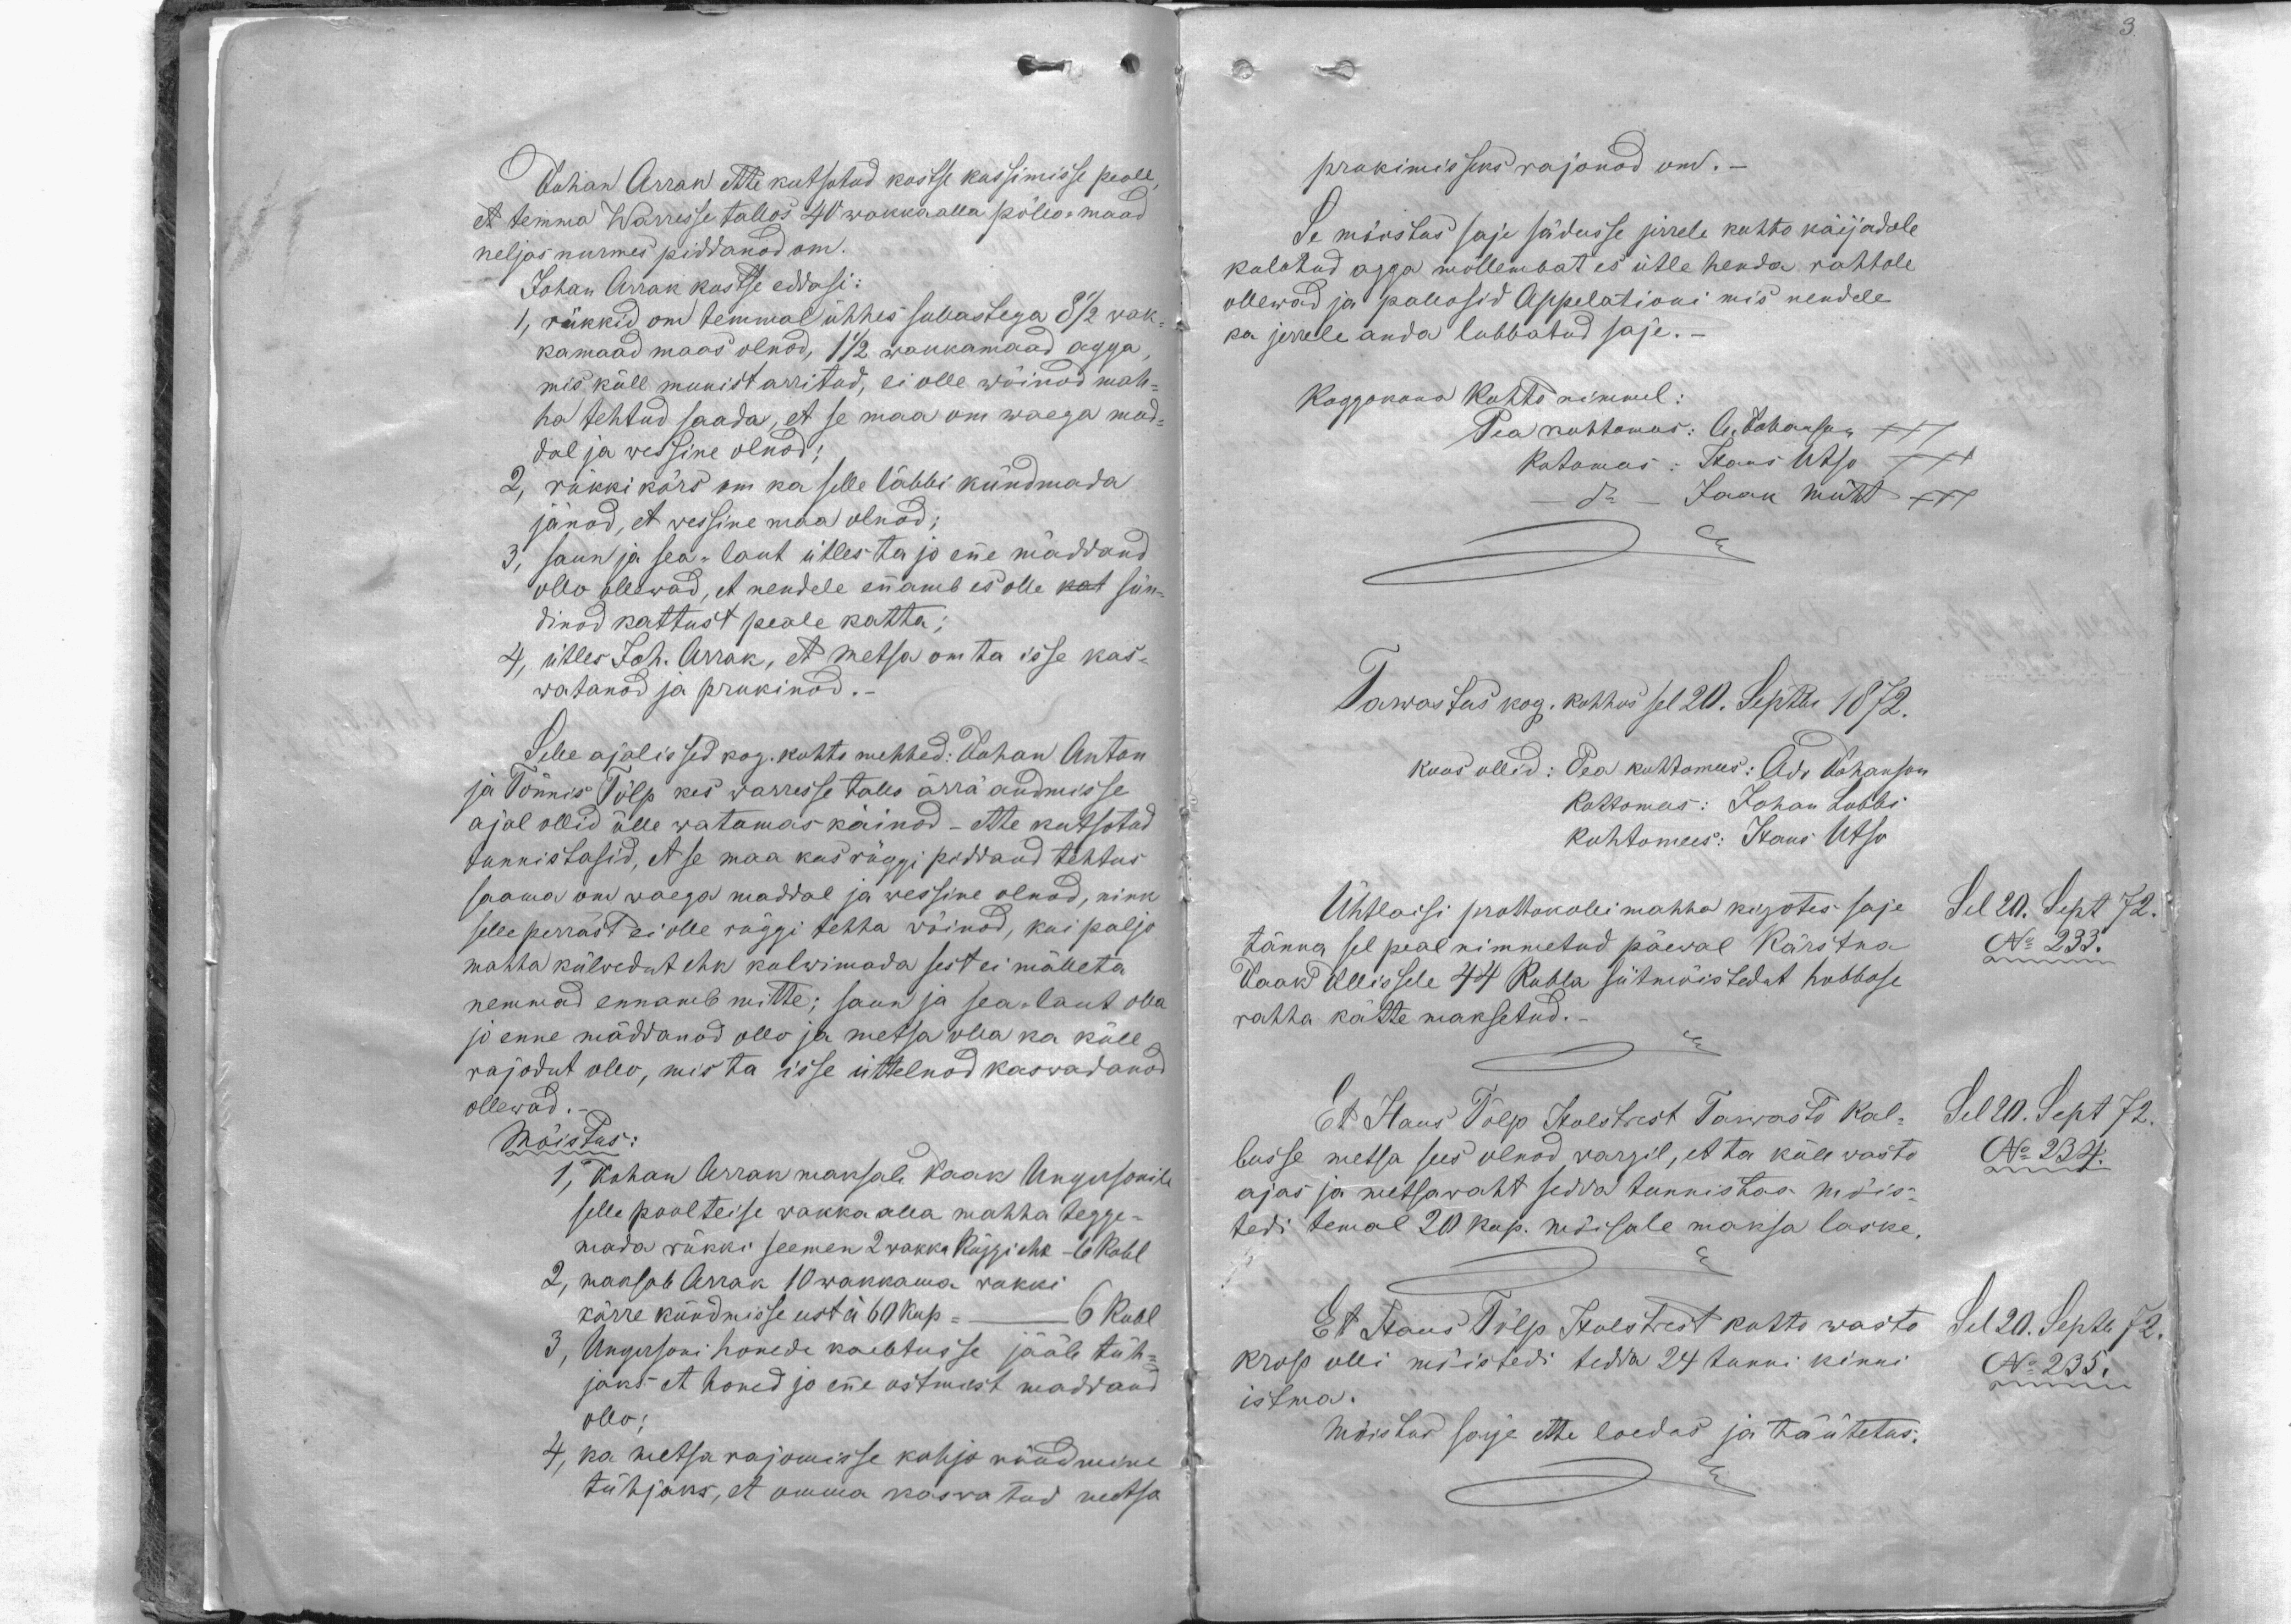 Johan Arrak ette kutsotud kostse küssimisse peale,
et temma Warresse tallos 40 wakkaalla põllo-maad
neljas nurmes piddanod om.
Johan Arrak kostse eddasi:
1, rükkid om temmal ühhes sullastega 8 1/2 wak-
kamaad maas olnod, 1 1/2 wakkamaad agga,
mis küll muuist arritud, ei olle wõinod mah-
ha tehtud saada, et se maa om waega mad-
dal ja wessine olnod;
2, rükki kõrs om ka selle läbbi kündmada
jänod, et wessine maa olnod;
3, saun ja sea-laut ütles ta jo eñe mäddand
ollo ollewad, et nendele eñamb es olle kat sün-
dinod kattust peale katta;
4, ütles Joh. Arrak, et metsa om ta isse kas-
watanod ja prukinod.-
Selle ajalissed kog. kohto mehhed: Johan Anton
ja Tõnnis Tõlp kes warresse tallo ärra andmisse
ajal ollid ülle watamas käinod - ette kutsotud
tunnistasid, et se maa kus rüggi piddand tehtus
saama om waega maddal ja wessine olnod, nink
selle perrast ei olle rüggi tehha wõinod, kui paljo
mahha külwedut ehk kulwimada sest ei mälleta
nemmad ennamb mitte; saun ja sea-laut olla
jo enne mäddanod ollo ja metsa olla ka küll
rajodut ollo, mis ta isse üttelnod kaswadanod
ollewad.-
Mõistus:
1, Johan Arrak maksab Jaak Ungersonile
selle poolteise wakkaalla mahha tegge-
mada rükki seemen 2 wakka Rüggi ehk - 6 Rubl
2, maksab Arrak 10 wakkama rukki
kõrre kündmisse eest à 60 kop = 6 Rubl
3, Ungersoni honede kaebtusse jääb tüh-
jaks et honed jo eñe ostmest maddand
ollo;
4, ka metsa rajomisse kahjo nõudmine
tühjaks, et omma kaswatud metsa
3
prukimisseks rajonod om.-
Se mõistus saje sädusse jerrele kohto käijadele
kulotud agga mollembat es ütle henda rahhole
ollewad ja pallosid Appelationi mis nendele
ka jerrele anda lubbatud saje.-
Koggokona Kohto nimmel:
Pea kohtomees: A. Johanson XXX
Kotomees: Hans Utso XXX
— d⸗ — Jaak Mütt XXX
Tawastus kog. kohhus sel 20. Septbr 1872.
Koos ollid: Pea kohtomees: Ado Johanson
Kohtomees: Johan Lubbi
Kohtomees: Hans Utso
Sel 20. Sept 72.
No 233.
Ühtlaisi prottokolli mahha kirjotes saje
tänna sel peal nimmetud päewal Kärstna
Jaak Ullissele 44 Rubla sütmõistedut hobbose
rahha kätte maksetud.-
Sel 20. Sept 72.
No 234.
Et Hans Tõlp Holstrest Tarwasto Kal-
busse metsa sees olnod wargil, et ta küll wasto
ajas ja metsawaht sedda tunnistas mõis-
tedi temal 20 kop. mõisale maksa laske.
Sel 20. Septbr 72.
No 235.
Et Hans Tõlp Holstrest kohto wasto
krop olli mõistedi tedda 24 tunni kinni
istma.
Mõistus saije ette loedas ja täütetus.